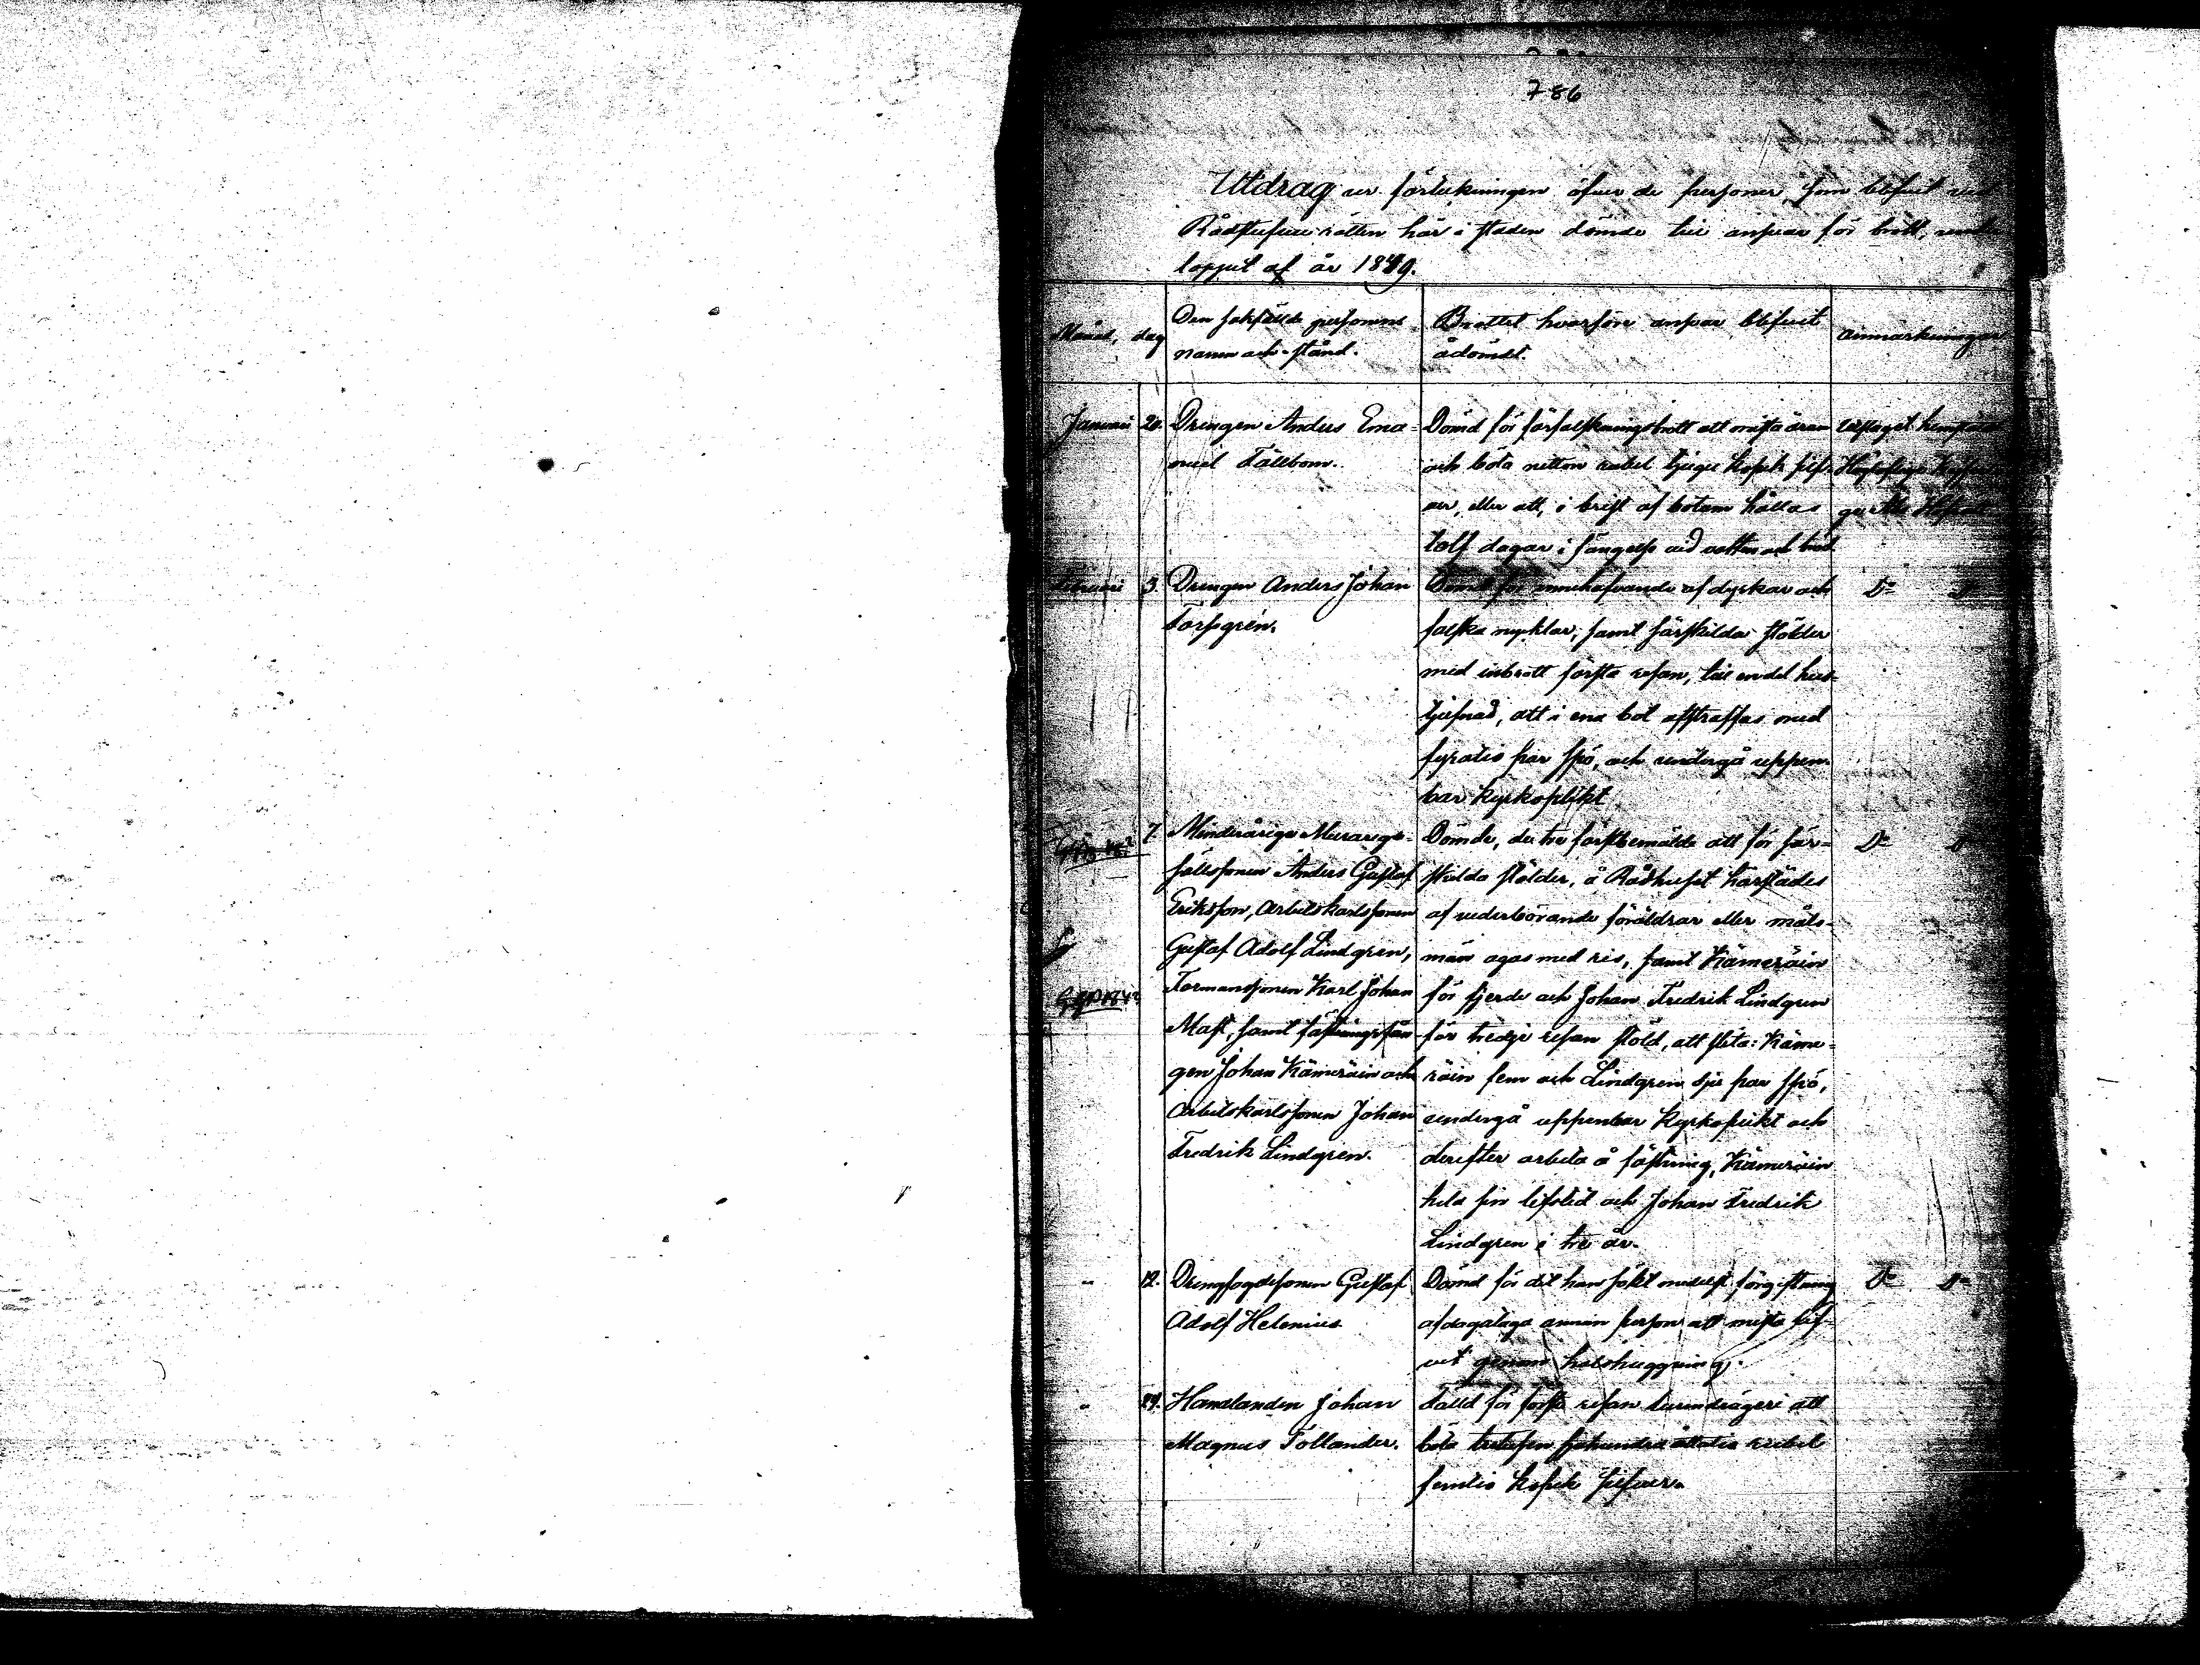 786
Utdrag ur förteckningen öfver de personer, som blifvit vid
Rådstufvu-rätten här i staden dömde till ansvar för brott, under
loppet af år 1849.
Månad, dag
Den sakfällde personens
namn och stånd.
Brottet hvarföre ansvar blifvit
ådömdt.
Anmärkningar
Januari 20. Drengen Anders Ema-
nuel Tällbom.
Dömd för förfalskningsbrott att mista äran
och böta nitton rubel tjugu kopek silf-
ver, eller att, i brist af botem hållas
tolf dagar i fängelse vid vatten och bröd.
Februari 3. Drengen Anders Johan
Torsgrén.
Dömd för innehafvande af dyrkar och
falska nycklar, samt särskilda stölder
med inbrott första resan, till en del hus-
tjufnad, att i ena bot afstraffas med
fyratio par spö, och undergå uppen-
bar kyrkoplikt
Dᵒ Dᵒ
7. Minderårige Murarege-
sällssonen Anders Gustaf
Eriksson, Arbetskarlssonen
Gustaf Adolf Lindgren,
Formanssonen Karl Johan
Mast, samt fästningsfån-
gen Johan Kämeräin och
Arbetskarlssonen Johan
Fredrik Lindgren.
Dömde, de tre förstbemälde att för sär-
skilda stölder, å Rådhuset härstädes
af vederbörande föräldrar eller måls-
män agas med ris, samt Kämeräin
för fjerde och Johan Fredrik Lindgren
för tredje resan stöld, att slita: Käme-
räin fem och Lindgren sju par spö,
undergå uppenbar kyrkoplikt och
derefter arbeta å fästning, Kämeräin
hela sin lifstid och Johan Fredrik
Lindgren i tre år.
Dᵒ Dᵒ
" 12. Drengfogdesonen Gustaf
Adolf Helenius
Dömd för det han sökt medelst förgiftning
afdagataga annan person att mista lif-
vet genom halshuggning.
Dᵒ Dᵒ
" 24. Handlanden Johan
Magnus Tollander.
Fälld för första resan lurendrägeri att
böta sjuhundra åttatio rubel
femtio kopek silfver.